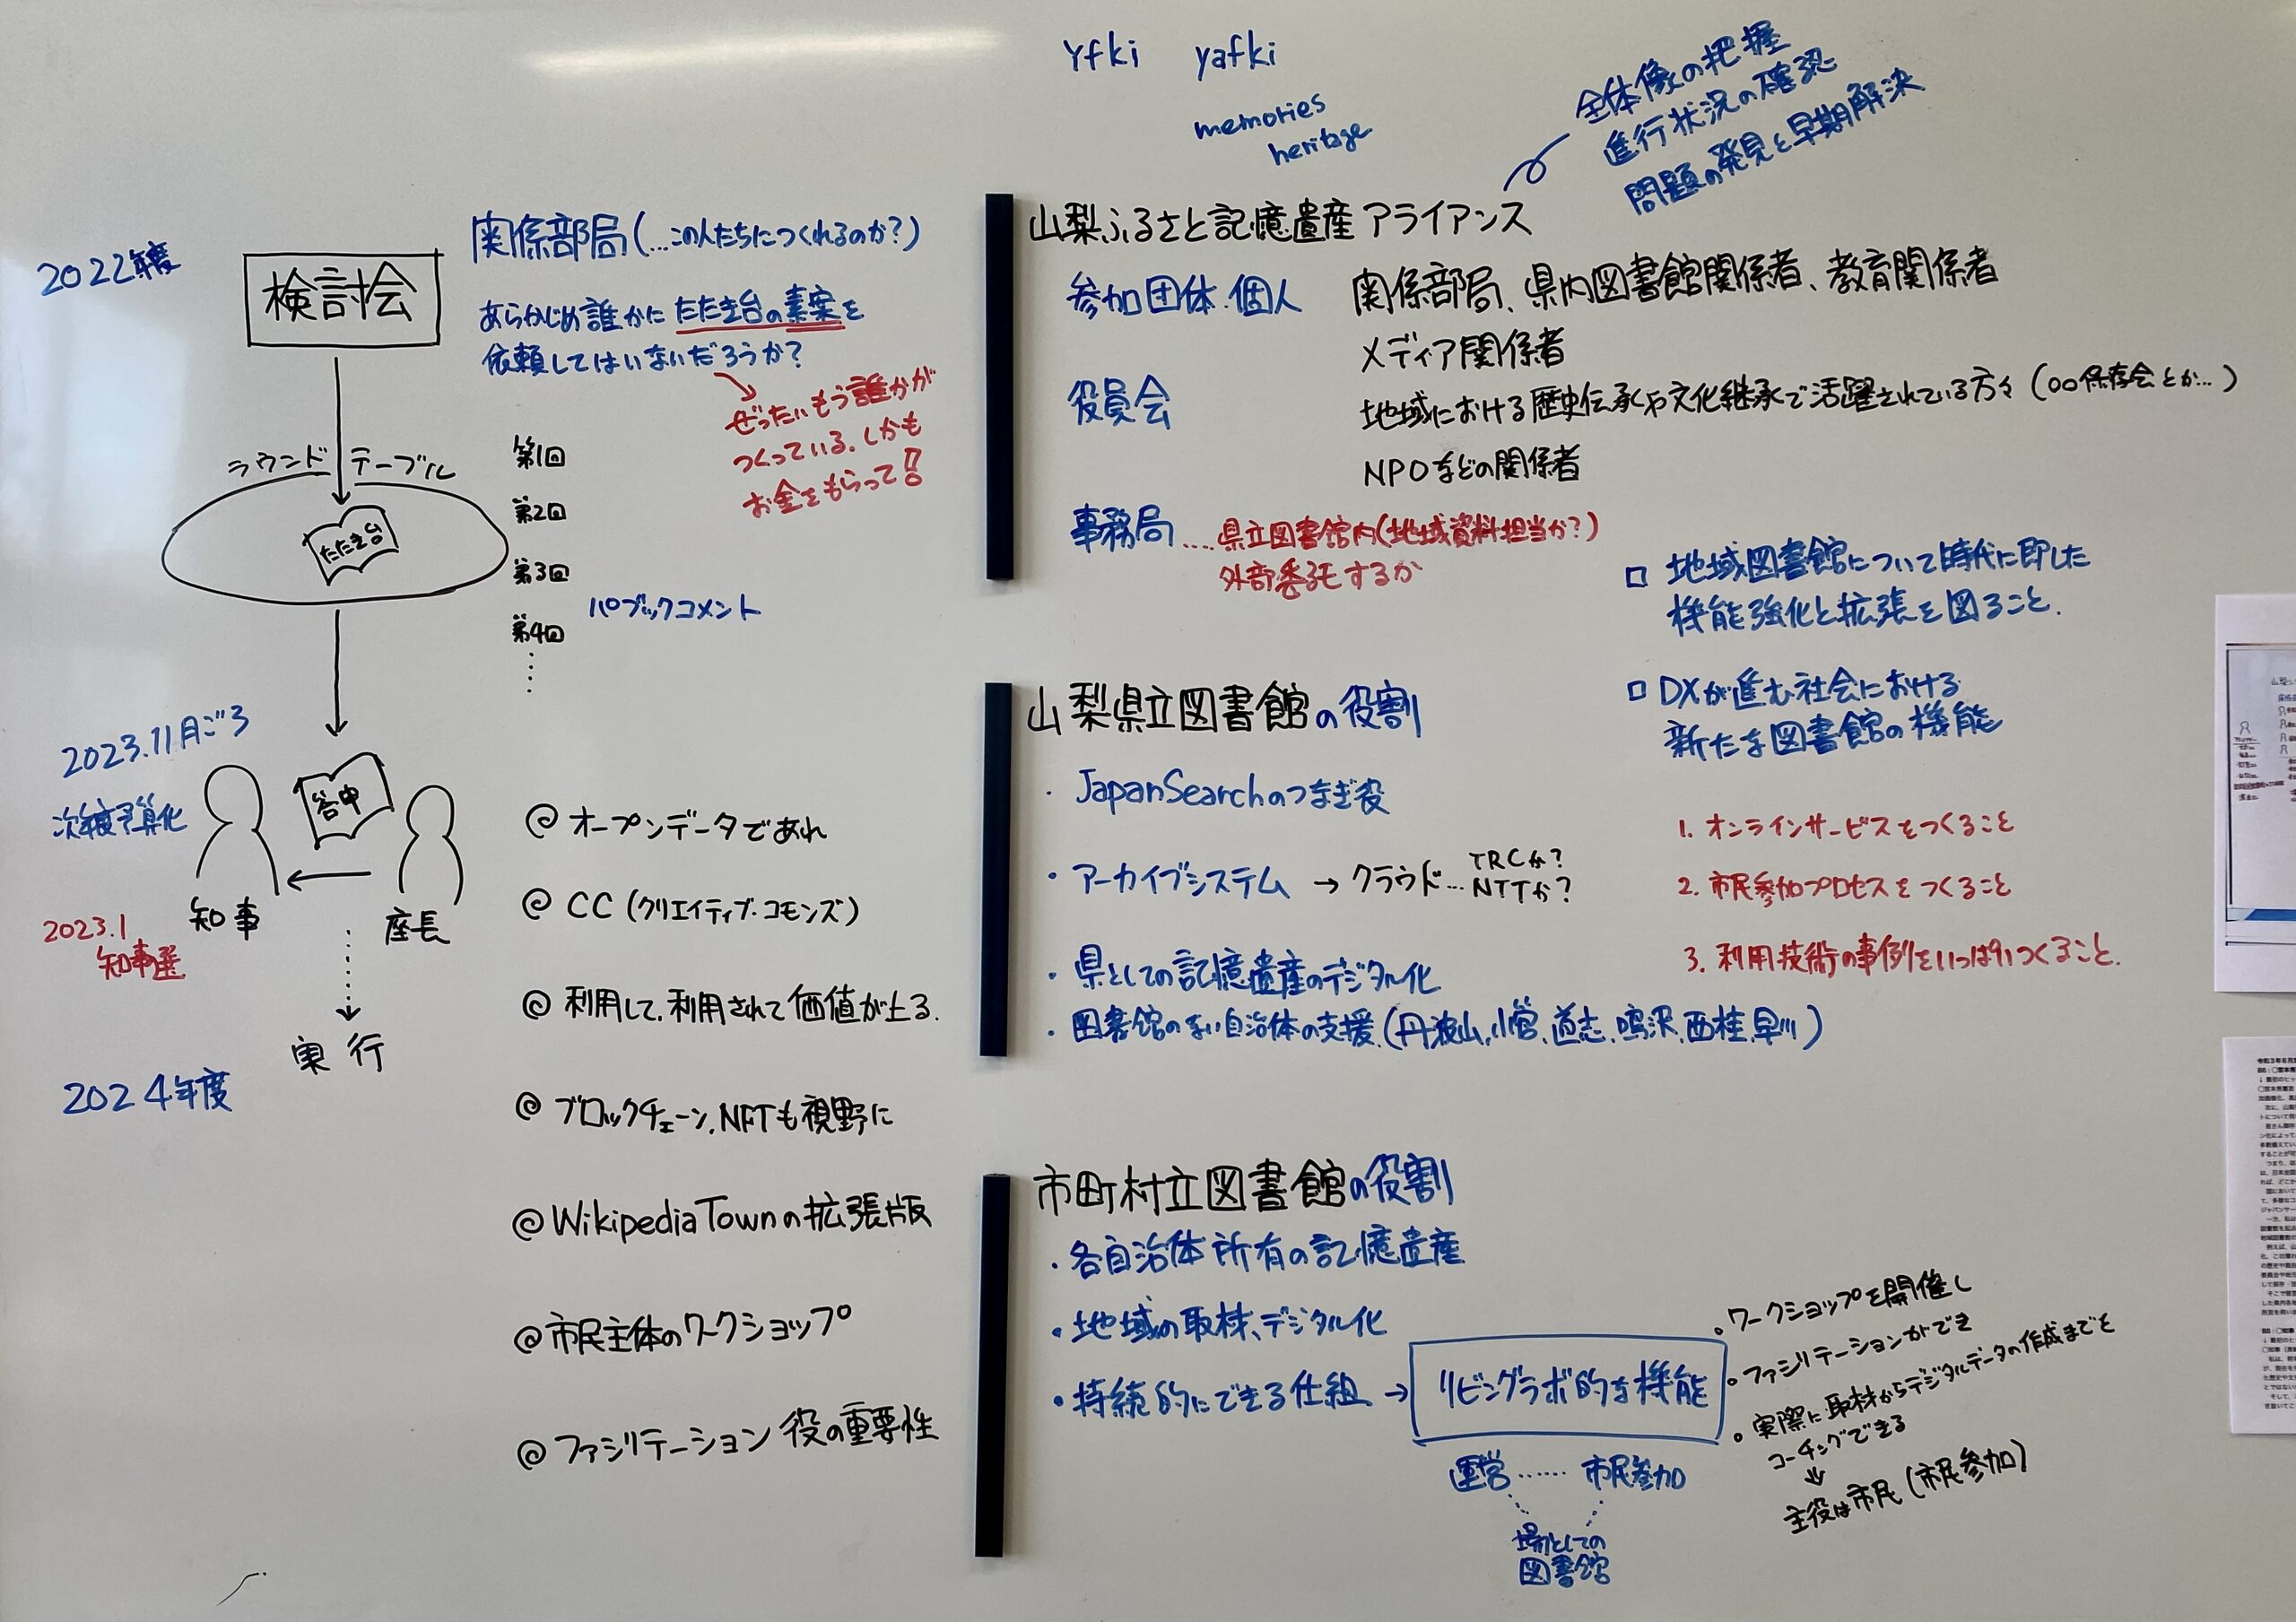 Yfki yafki
memories
heritage
全体像の把握
進行状況の確認
問題の発見と早期解決
2022年度
検討会
関係部局(…この人たちにつくれるのか?)
あらかじめ誰かにたたき台の素案を
依頼してはいないだろうか?
ぜったいもう誰かが
つくっている。しかも
お金をもらって!!
ラウンドテーブル
たたき台
第1回
第2回
第3回
第4回
パブックコメント
2023.11月ごろ
次年度予算化
答申
知事
座長
2023.1
知事選
実行
2024年度
@ オープンデータであれ
@ CC (クリエイティブ・コモンズ)
@ 利用して、利用されて価値が上る.
@ ブロックチェーン、NFTも視野に
@ WikipediaTownの拡張版
@ 市民主体のワークショップ
@ ファシリテーション役の重要性
山梨ふるさと記憶遺産アライアンス
参加団体・個人
関係部局、県内図書館関係者、教育関係者
メディア関係者
役員会
地域における歴史伝承や文化継承で活躍されている方々(○○保存会とか…)
NPOなどの関係者
事務局....県立図書館内(地域資料担当か?)
外部委託するか
□ 地域図書館について時代に即した
機能強化と拡張を図ること.
□ DXが進む社会における
新たな図書館の機能
1. オンラインサービスをつくること
2. 市民参加プロセスをつくること
3. 利用技術の事例をいっぱいつくること.
山梨県立図書館の役割
・JapanSearchのつなぎ役
・アーカイブシステム → クラウド… TRCか?
NTTか?
・県としての記憶遺産のデジタル化
・図書館のない自治体の支援(丹波山、小菅、道志、鳴沢、西桂、早川)
市町村立図書館の役割
・各自治体所有の記憶遺産
・地域の取材、デジタル化
・持続的にできる仕組 → リビングラボ的な機能
運営……市民参加
場としての
図書館
。ワークショップを開催し
。ファシリテーションができ
。実際に取材からデジタルデータの作成までを
コーチングできる
主役は市民(市民参加)